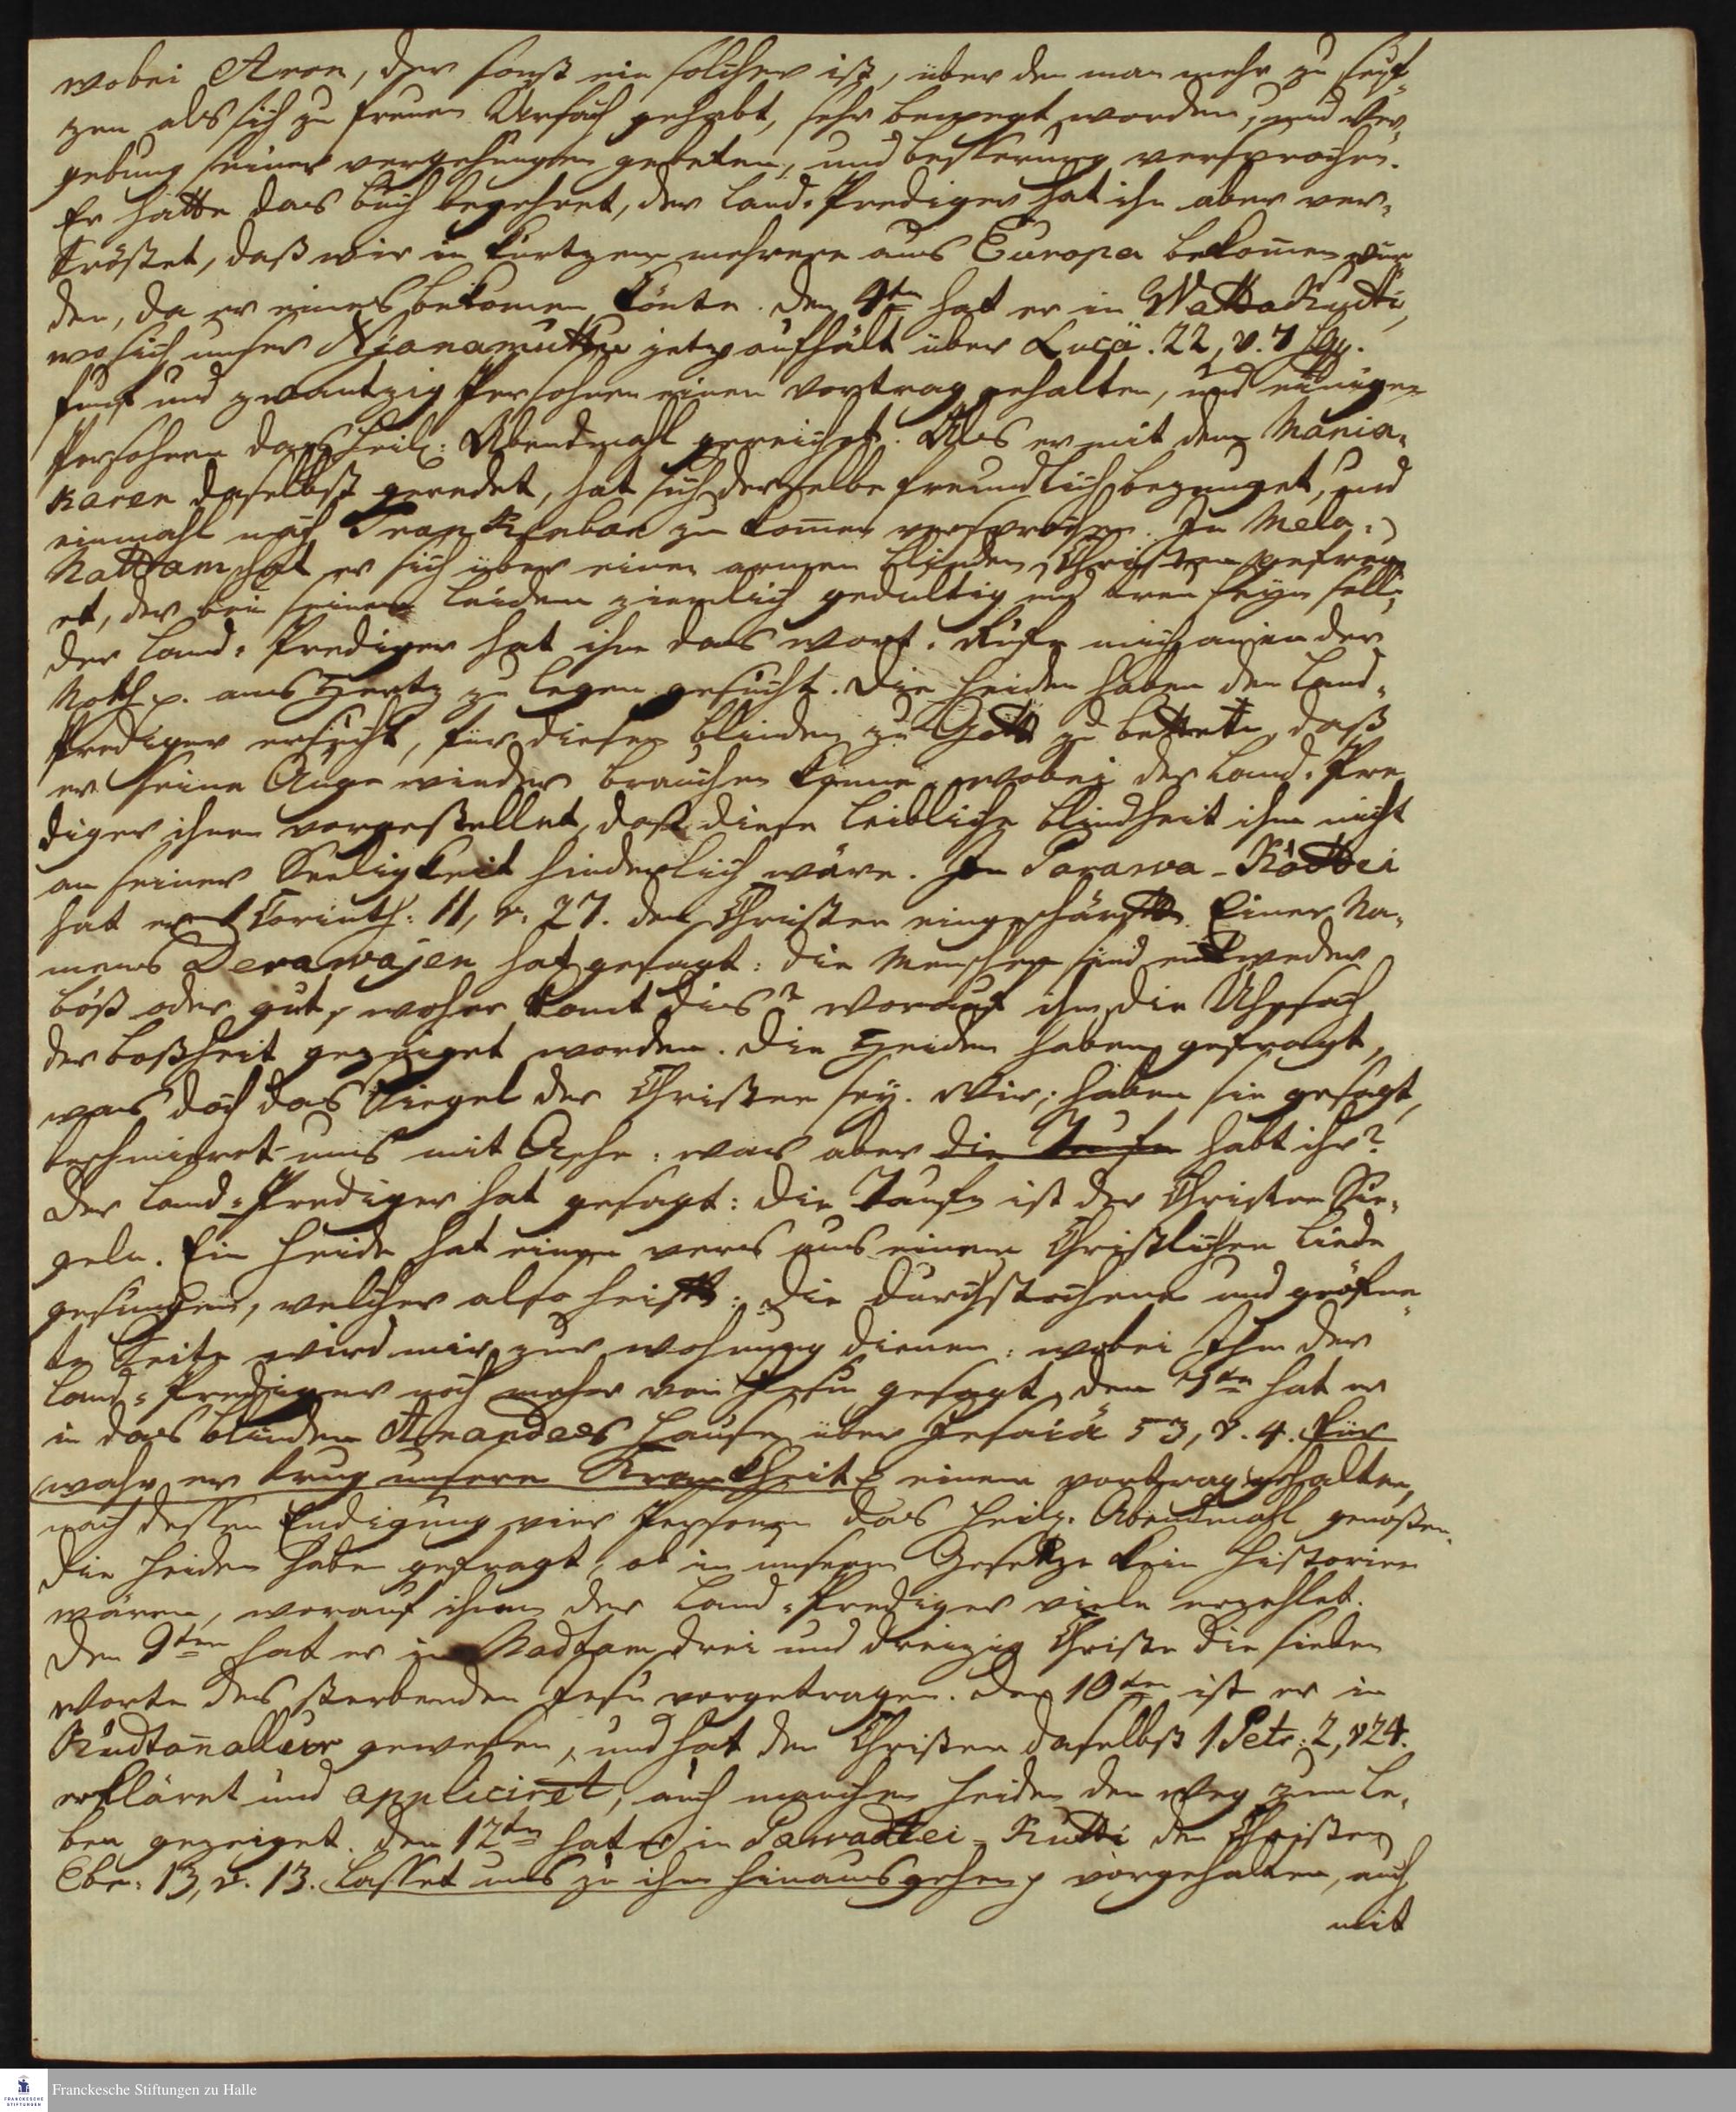 wobei Aron, der sonst ein solcher ist, über den man mehr zu seuf-
zen als sich zu freuen Ursach gehabt, sehr bewegt worden, und Ver-
gebung seiner vergehungen gebeten, und besserung versprochen.
Er hatte das buch begehret, der Land-Prediger hat ihn aber ver-
tröstet, daß wir in kurtzem mehrere aus Europa bekomen wür-
den, da er eines bekomen könte. Den 4ten hat er in Wattakudti,
wo sich unser Njanamuttu jetzo aufhält über Lucä. 22, v. 7 sqq.
funf und zwantzig Persohnen einen Vortrag gehalten, und einigen
Persohnen das heil: Abendmahl gereichet. Als er mit dem Mania-
karen daselbst geredet, hat sich derselbe freundlich bezeuget, und
einmahl nach Trankenbar zu komen versprochen. In Mela-
Nattam hat er sich über einen armen blinden Christen gefreu-
et, der bei seinem leiden ziemlich gedultig und treu seyn soll;
der Land-Prediger hat ihm das wort: Rufe mich an in der
Noth p. ans Hertz zu legen gesucht. Die heiden haben den Land-
Prediger ersucht, für diesen blinden zu Gott zu betten, daß
er seine Auge wieder brauchen könne, wobei der Land-Pre-
diger ihnen vorgestellet, daß diese leibliche blindheit ihm nicht
an seiner Seeligkeit hinderlich wäre. In Parawa-Kottei
hat er 1 Corinth: 11, v. 27. den Christen eingeschärft. Einer Na-
mens Derawajen hat gesagt: die Menschen sind entweder
böß oder gut, woher komt dies? worauf ihm die Uhrsach
der boßheit gezeiget worden. Die Heiden haben gefragt,
was doch das Siegel der Christen sey. Wir, haben sie gesagt,
beschmieret uns mit Asche: was aber die Taufe habt ihr?
Der Land-Prediger hat gesagt: die Taufe ist der Christen Sie-
geln. Ein heide hat einen vers aus einem Christlichen liede
gesungen, welcher also heist: Die durchstochene und geöfne-
te Seite wird mir zur wohnung dienen: wobei Ihm der
Land-Prediger noch mehr von Jesu gesagt. Den 7ten hat er
in des blinden Anandees Hause über Jesaiä 53, v. 4. Für
wahr er trug unsere Kranckheit p einen vortrag gehalten,
nach dessen Endigung vier Personen das heilge Abendmahl genoßen.
Die heiden haben gefragt, ob in unserm Gesetze kein Historien
wären, worauf ihnen der Land-Prediger viele erzehlet.
Den 9ten hat er in Nadtam drei und dreizig Christen die sieben
Worte des sterbenden Jesu vorgetragen. Den 10ten ist er in
Kudtanallur gewesen, und hat den Christen daselbst 1 Petr: 2, v 24.
erkläret und appliciret, auch manchen heiden den Weg zum le-
ben gezeiget. Den 12ten hat er in Pawadtei-Kudti den Christen
Ebr: 13, v. 13. Lasset uns zu ihm hinausgehen p vorgehalten, auch
mit
Franckesche Stiftungen zu Halle